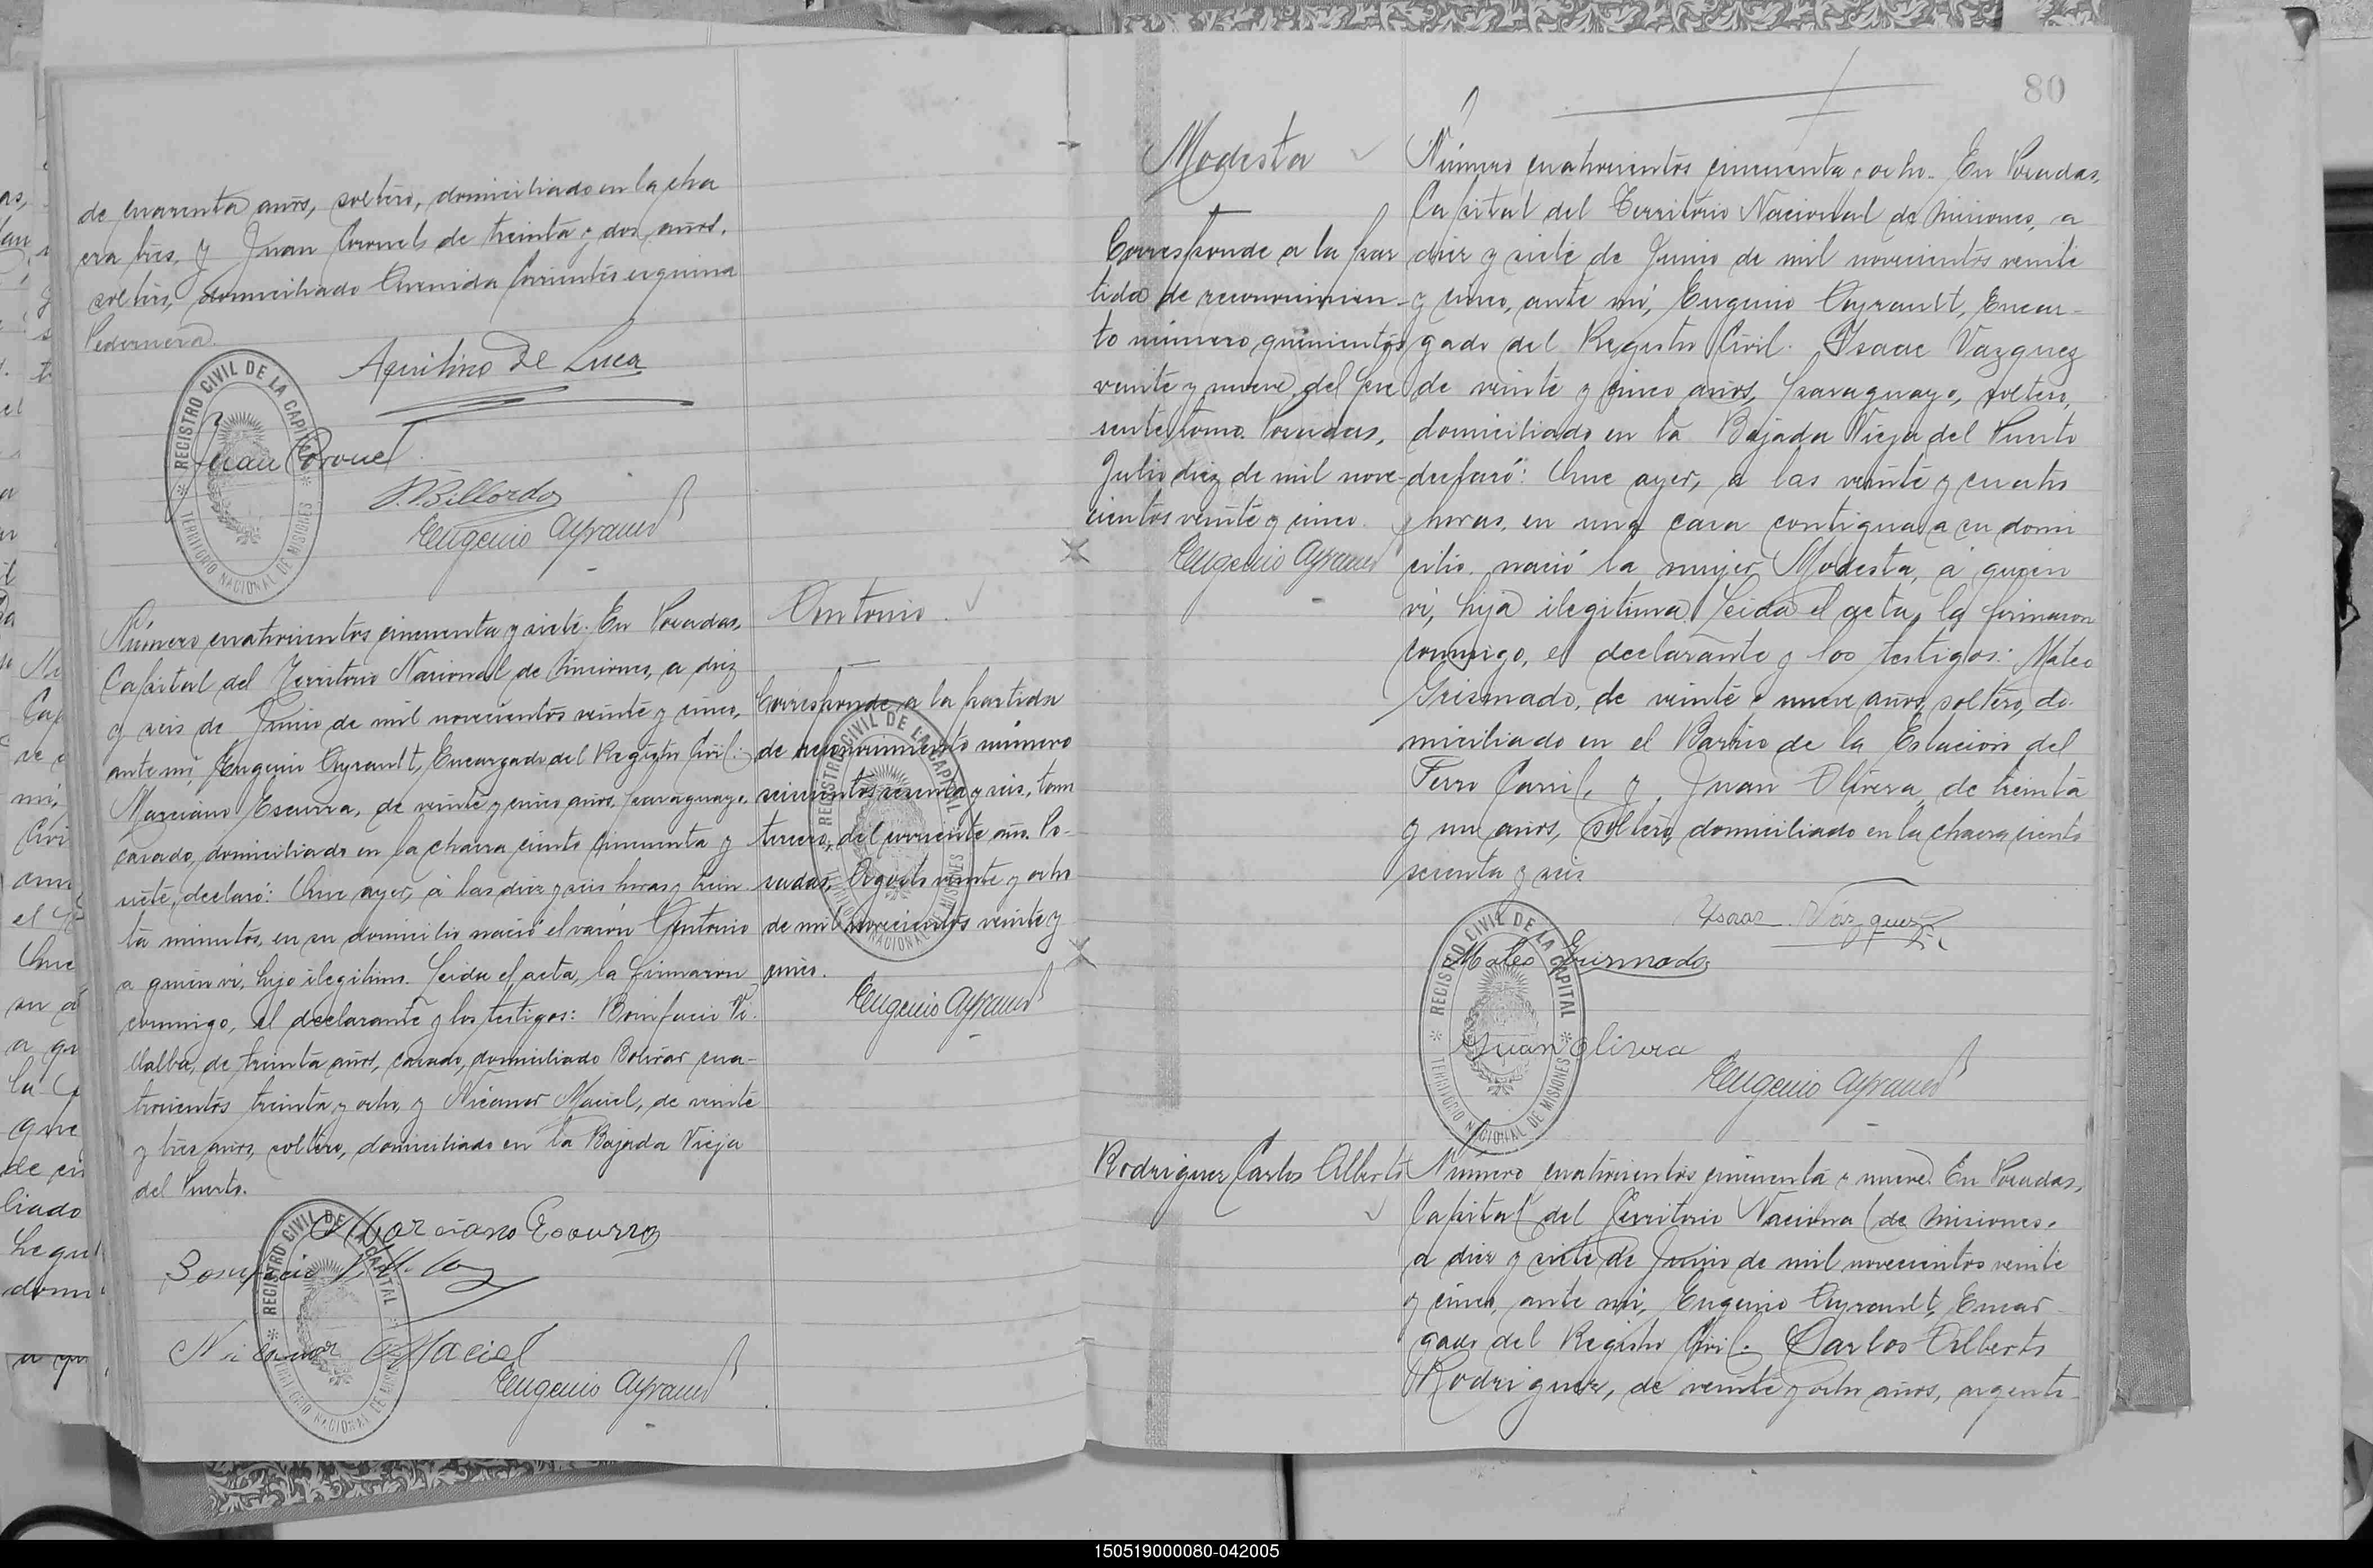 de cuarenta años, soltero, domiciliado en la cha
cra tres, y Juan Coronel, de treinta y dos años,
soltero, domiciliado Avenida Corrientes esquina
Pedernera.
Aquilino De Luca
Juan Coronel
P. Billordo
Eugenio Ayrault
REGISTRO CIVIL DE LA CAPITAL
TERRITORIO NACIONAL DE MISIONES
Número cuatrocientos cincuenta y siete. En Posadas,
Capital del Territorio Nacional de Misiones, a diez
y seis de Junio de mil novecientos veinte y cinco,
ante mí, Eugenio Ayrault, Encargado del Registro Civil:
Marciano Escurra, de veinte y cinco años, paraguayo,
casado, domiciliado en la chacra ciento cincuenta y
siete, declaró: Que ayer, á las diez y seis horas y trein
ta minutos, en su domicilio nació el varón Antonio
a quien ví, hijo ilegítimo. Leida el acta, la firmaron
conmigo, el declarante y los testigos: Bonifacio Vi
llalba, de treinta años, casado, domiciliado Bolívar cua-
trocientos treinta y ocho, y Nicanor Maciel, de veinte
y tres años, soltero, domiciliado en la Bajada Vieja
del Puerto.
Marciano Escurra
Bonifacio Villalba
Nicanor Maciel
Eugenio Ayrault
REGISTRO CIVIL DE LA CAPITAL
TERRITORIO NACIONAL DE MISIONES
Antonio
Corresponde a la partida
de reconocimiento número
seiscientos sesenta y seis, tomo
tercero, del corriente año. Po-
sadas, Agosto veinte y ocho
de mil novecientos veinte y
cinco.
Eugenio Ayrault
REGISTRO CIVIL DE LA CAPITAL
TERRITORIO NACIONAL DE MISIONES
80
Modesta
Corresponde a la par
tida de reconocimien-
to número quinientos
veinte y nueve, del pre
sente tomo. Posadas,
Julio diez de mil nove-
cientos veinte y cinco.
Eugenio Ayrault
Número cuatrocientos cincuenta y ocho. En Posadas,
Capital del Territorio Nacional de Misiones, a
diez y siete de Junio de mil novecientos veinte
y cinco, ante mí, Eugenio Ayrault, Encar-
gado del Registro Civil. Isaac Vazquez
de veinte y cinco años, paraguayo, soltero,
domiciliado en la Bajada Vieja del Puerto
declaró: Que ayer, a las veinte y cuatro
horas, en una casa contigua a su domi
cilio, nació la mujer Modesta, á quien
ví, hija ilegítima. Leida el acta, la firmaron
conmigo, el declarante y los testigos: Mateo
Grismado, de veinte y nueve años, soltero, do-
miciliado en el Barrio de la Estación del
Ferro Carril, y Juan Olivera, de treinta
y un años, soltero, domiciliado en la chacra ciento
sesenta y seis
Isaac Vazquez
Mateo Grismado
Juan Olivera
Eugenio Ayrault
REGISTRO CIVIL DE LA CAPITAL
TERRITORIO NACIONAL DE MISIONES
Rodriguez Carlos Alberto
Número cuatrocientos cincuenta y nueve. En Posadas,
Capital del Territorio Nacional de Misiones,
a diez y siete de Junio de mil novecientos veinte
y cinco, ante mí, Eugenio Ayrault, Encar
gado del Registro Civil. Carlos Alberto
Rodriguez, de veinte y ocho años, argenti-
150519000080-042005